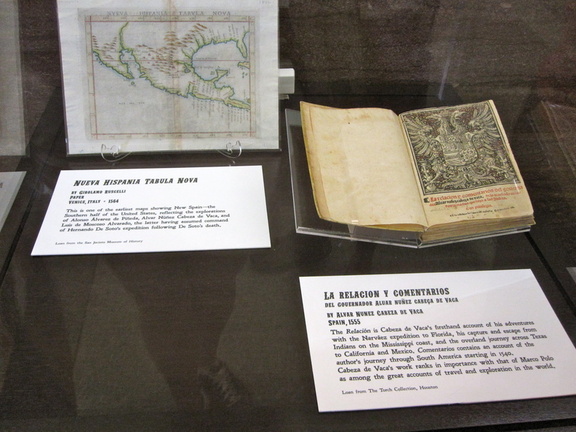 NUEVA HISPANIA TABULA NOVA
NUEVA HISPANIA TABULA NOVA
BY GIROLAMO RUSCELLI
PAPER
VENICE, ITALY - 1564
This is one of the earliest maps showing New Spain—the
Southern half of the United States, reflecting the explorations
of Alonso Álvarez de Piñeda, Alvar Núñez Cabeza de Vaca, and
Luis de Moscoso Alvarado, the latter having assumed command
of Hernando De Soto's expedition following De Soto's death.
Loan from the San Jacinto Museum of History
LA RELACION Y COMENTARIOS
DEL GOUERNADOR ALUAR NUÑEZ CABEÇA DE VACA
BY ALVAR NUNEZ CABEZA DE VACA
SPAIN, 1555
The Relación is Cabeza de Vaca's firsthand account of his adventures
with the Narváez expedition to Florida, his capture and escape from
Indians on the Mississippi coast, and the overland journey across Texas
to California and Mexico. Comentarios contains an account of the
author's journey through South America starting in 1540.
Cabeza de Vaca's work ranks in importance with that of Marco Polo
as among the great accounts of travel and exploration in the world.
Loan from The Torch Collection, Houston